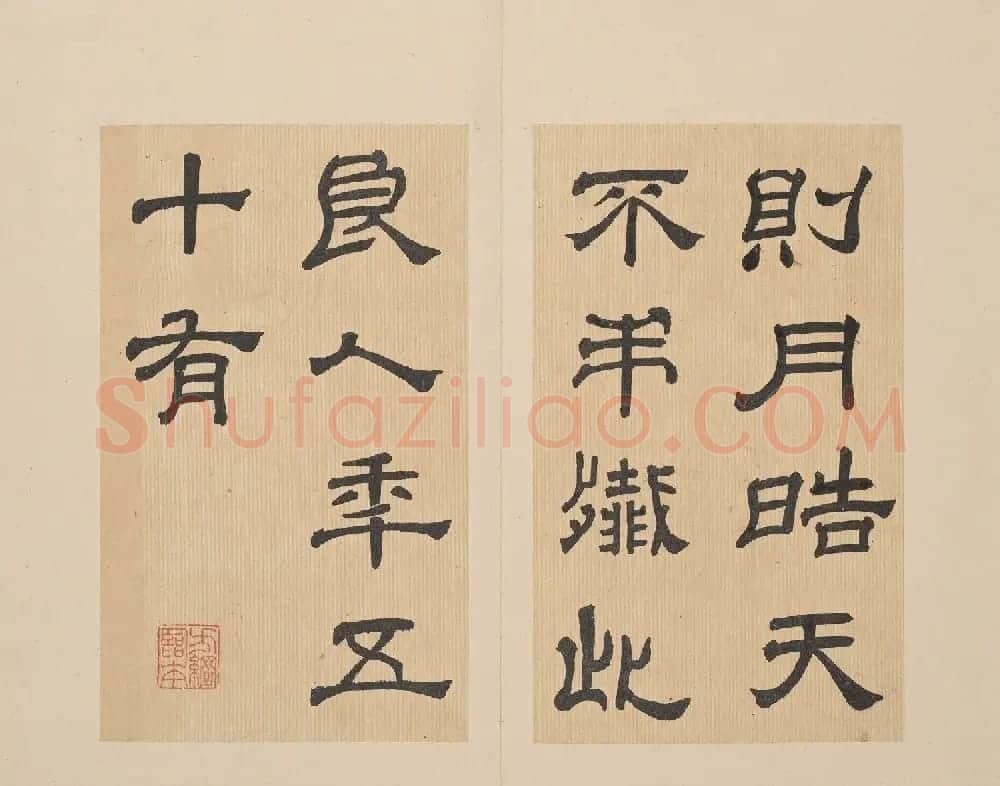 則月晧天
不弔殲此
良人年五
十有
Shufaziliao.COM